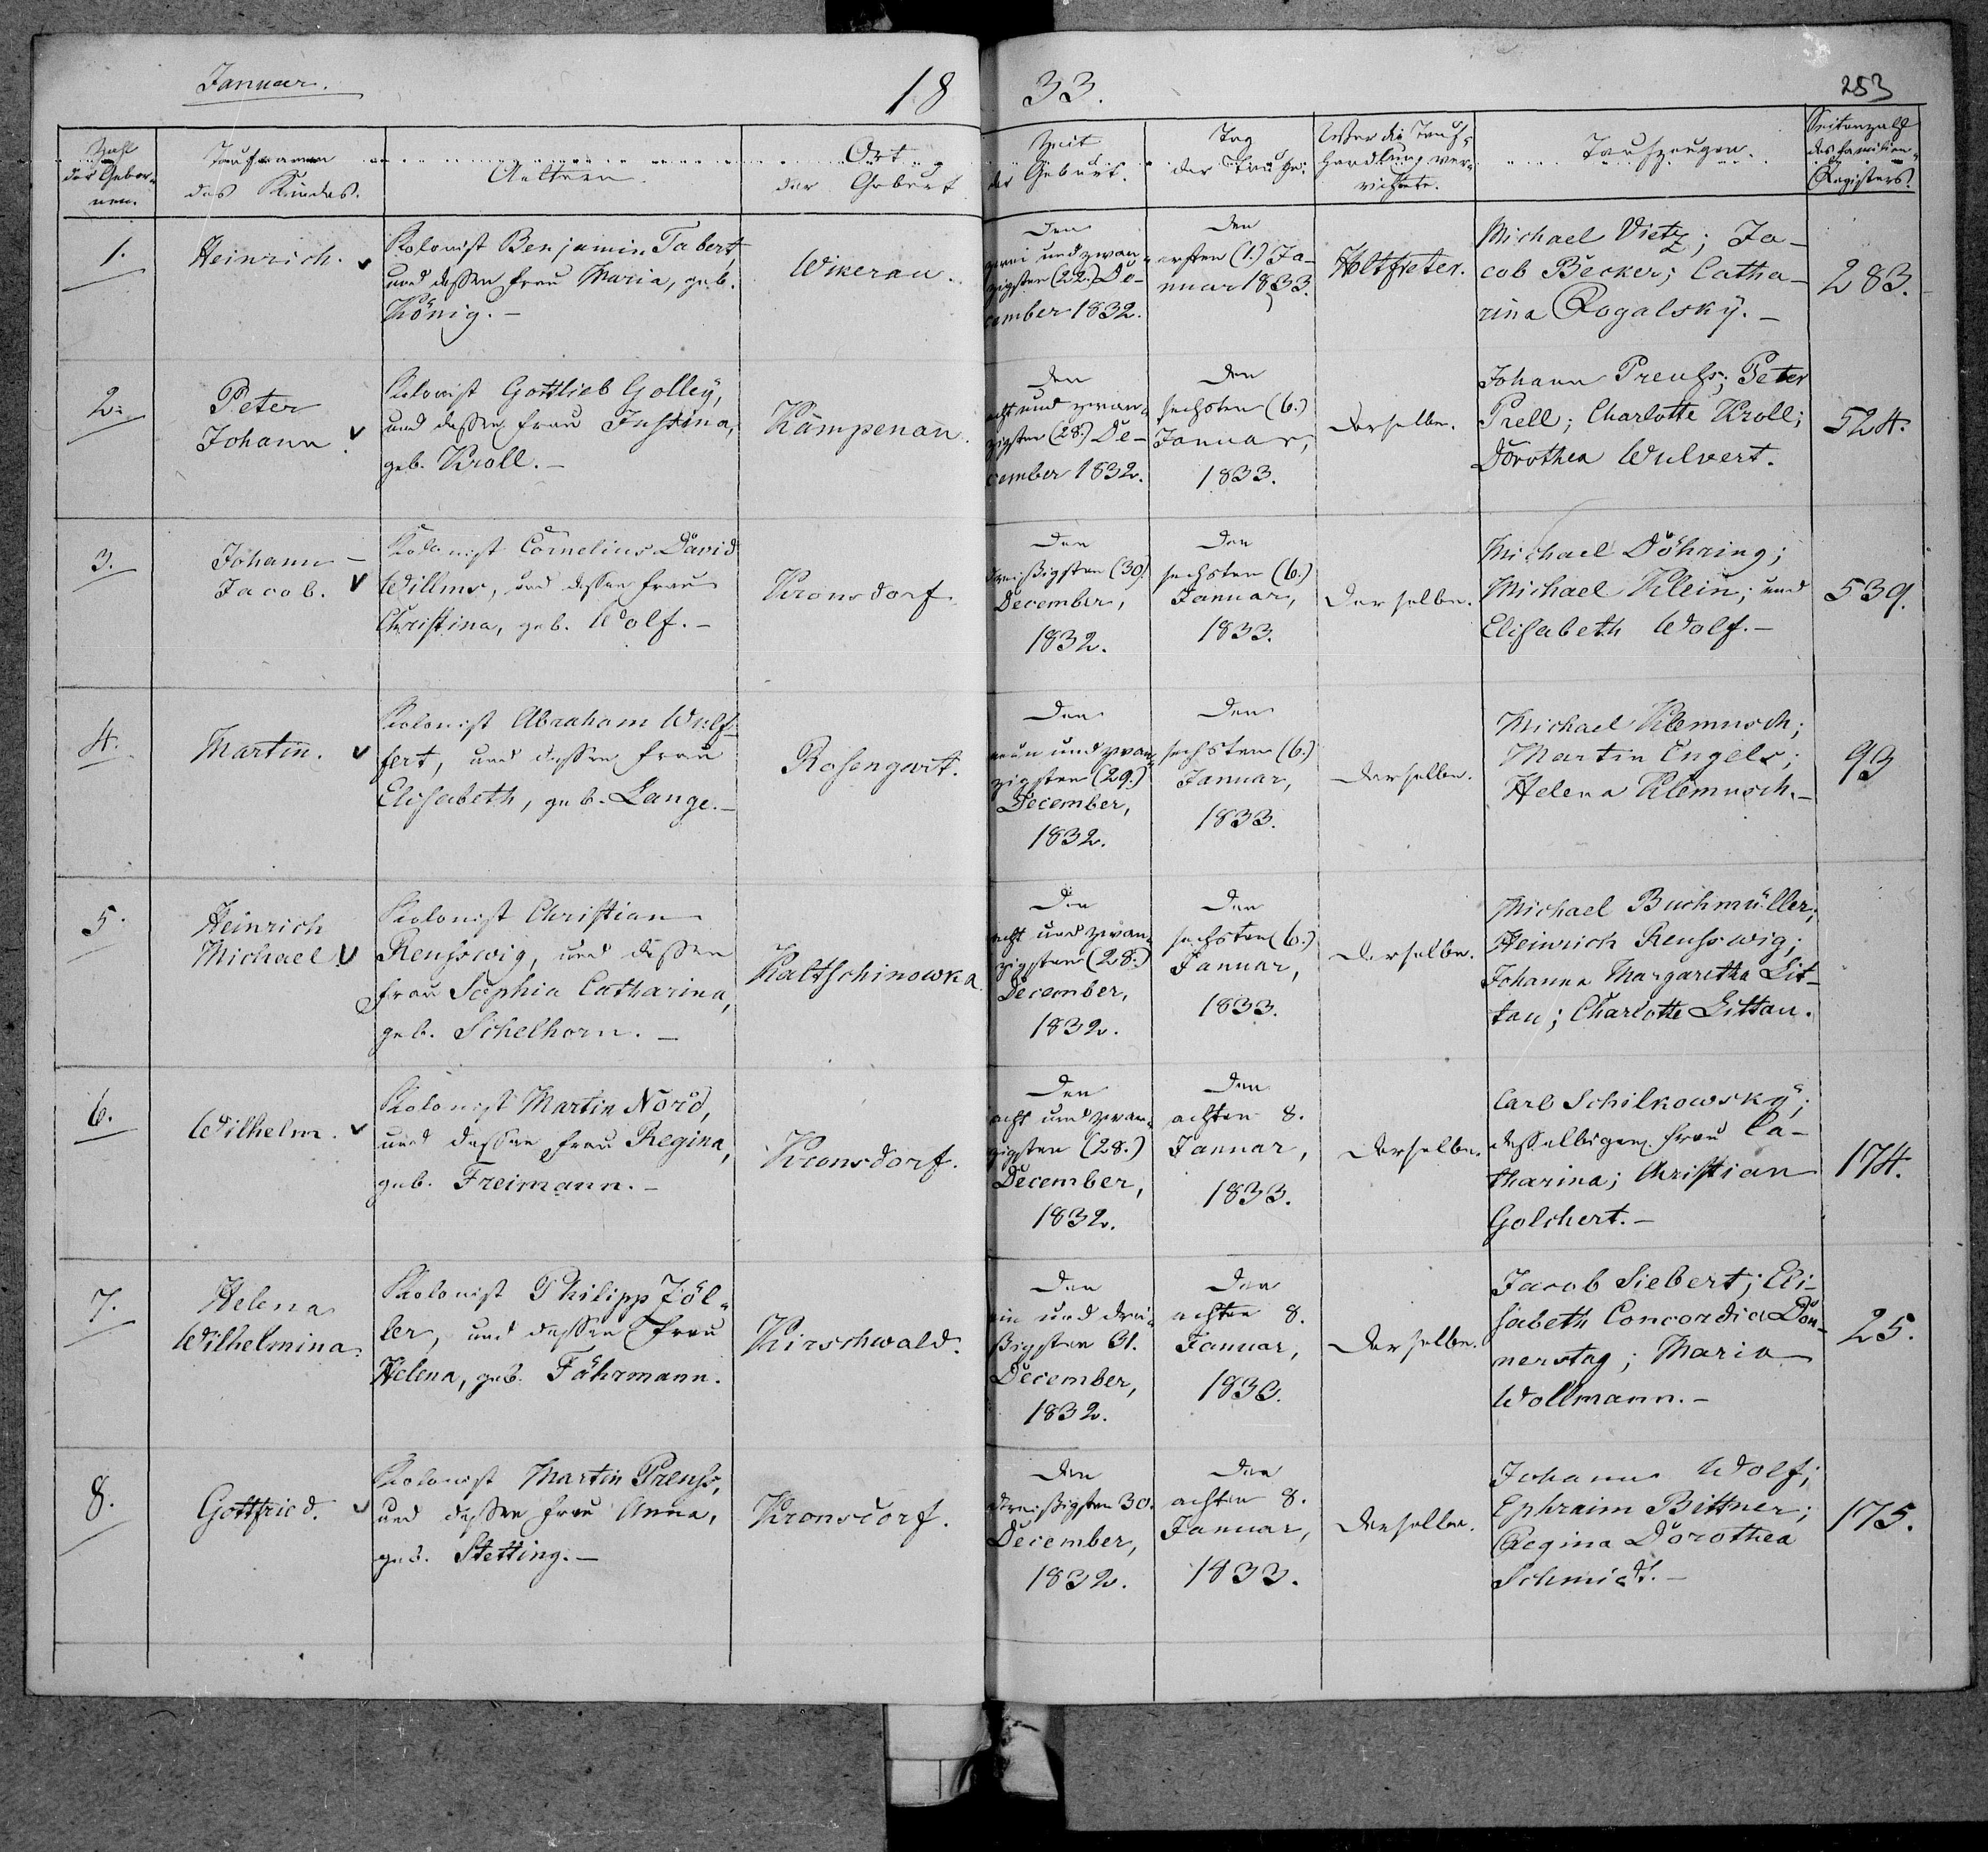 Januar.
18 33.
253
Zahl
der Gebor-
nen.
Taufnamen
des Kindes.
Aeltern.
Ort
der Geburt
Zeit
der Geburt.
Tag
der Taufe.
Wer die Tauf-
handlung ver-
richtete.
Taufzeugen.
Seitenzahl
des Familien-
Registers.
1.
Heinrich.
Kolonist Benjamin Tabert,
und dessen Frau Maria, geb.
König.-
Wikerau.
Den
zwei und zwan-
zigsten (22.) De-
cember 1832.
Den
ersten (1.) Ja-
nuar 1833.
Holtfreter.
Michael Vietz; Ja-
cob Becker; Catha-
rina Rogalsky.-
283.
2.
Peter
Johann.
Kolonist Gottlieb Golley,
und dessen Frau Justina,
geb. Kroll.-
Kampenau.
Den
acht und zwan-
zigsten (28.) De-
cember 1832.
Den
sechsten (6.)
Januar,
1833.
Derselbe.
Johann Preuss; Peter
Prell; Charlotte Kroll;
Dorothea Wulvert.
524.
3.
Johann
Jacob.
Kolonist Cornelius David
Willms, und dessen Frau
Christina, geb. Wolf.-
Kronsdorf.
Den
dreissigsten (30)
December,
1832.
Den
sechsten (6.)
Januar,
1833.
Derselbe.
Michael Döhring;
Michael Klein; und
Elisabeth Wolf.-
539.
4.
Martin.
Kolonist Abraham Wulf-
fert, und dessen Frau
Elisabeth, geb. Lange.-
Rosengart.
Den
neun und zwan-
zigsten (29.)
December,
1832.
Den
sechsten (6.)
Januar,
1833.
Derselbe.
Michael Klemusch;
Martin Engels;
Helena Klemusch.-
93
5.
Heinrich
Michael.
Kolonist Christian
Reusswig, und dessen
Frau Sophia Catharina,
geb. Schelhorn.-
Kaltschinowka.
Den
acht und zwan-
zigsten (28.)
December,
1832.
Den
sechsten (6.)
Januar,
1833.
Derselbe.
Michael Buchmüller;
Heinrich Reusswig;
Johanna Margaretha Lit-
tau; Charlotte Littau.
6.
Wilhelm.
Kolonist Martin Nord,
und dessen Frau Regina,
geb. Freimann.-
Kronsdorf.
Den
acht und zwan-
zigsten (28.)
December,
1832.
Den
achten 8.
Januar,
1833.
Derselbe.
Carl Schilkowsky;
desselbigen Frau Ca-
tharina; Christian
Golchert.-
174.
7.
Helena
Wilhelmina.
Kolonist Philipp Jöl-
ler, und dessen Frau
Helena, geb. Föhrmann.
Kirschwald.
Den
ein und drei-
ssigsten 31.
December,
1832.
Den
achten 8.
Januar,
1833.
Derselbe.
Jacob Siebert; Eli-
sabeth Concordia Don-
nerstag; Maria
Wollmann.-
25.
8.
Gottfried.
Kolonist Martin Preuss,
und dessen Frau Anna,
geb. Stetting.-
Kronsdorf.
Den
dreissigsten 30.
December,
1832.
Den
achten 8.
Januar,
1833.
Derselbe.
Johann Wolf;
Ephraim Bittner;
Regina Dorothea
Schmidt.-
175.